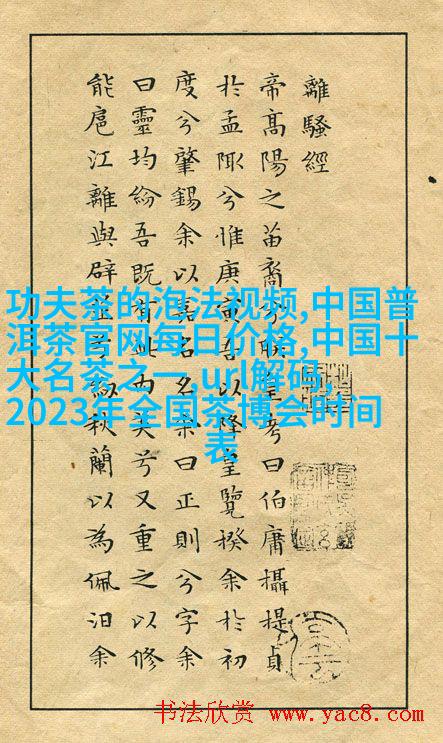 離騷經
帝高陽之苗裔兮朕皇考曰伯庸攝提貞
於孟陬兮惟庚寅吾以降皇覽揆余於初
度兮肇錫余以嘉名名余曰正則兮字余
曰靈均紛吾既有此內美兮又重之以修
能扈江離與辟芷兮紉秋蘭以為佩汨余
功夫茶的泡法视频,中国普
洱茶官网每日价格,中国十
大名茶之一 ,url解码,
2023年全国茶博会时间
表
书法欣赏 www.yac8.com